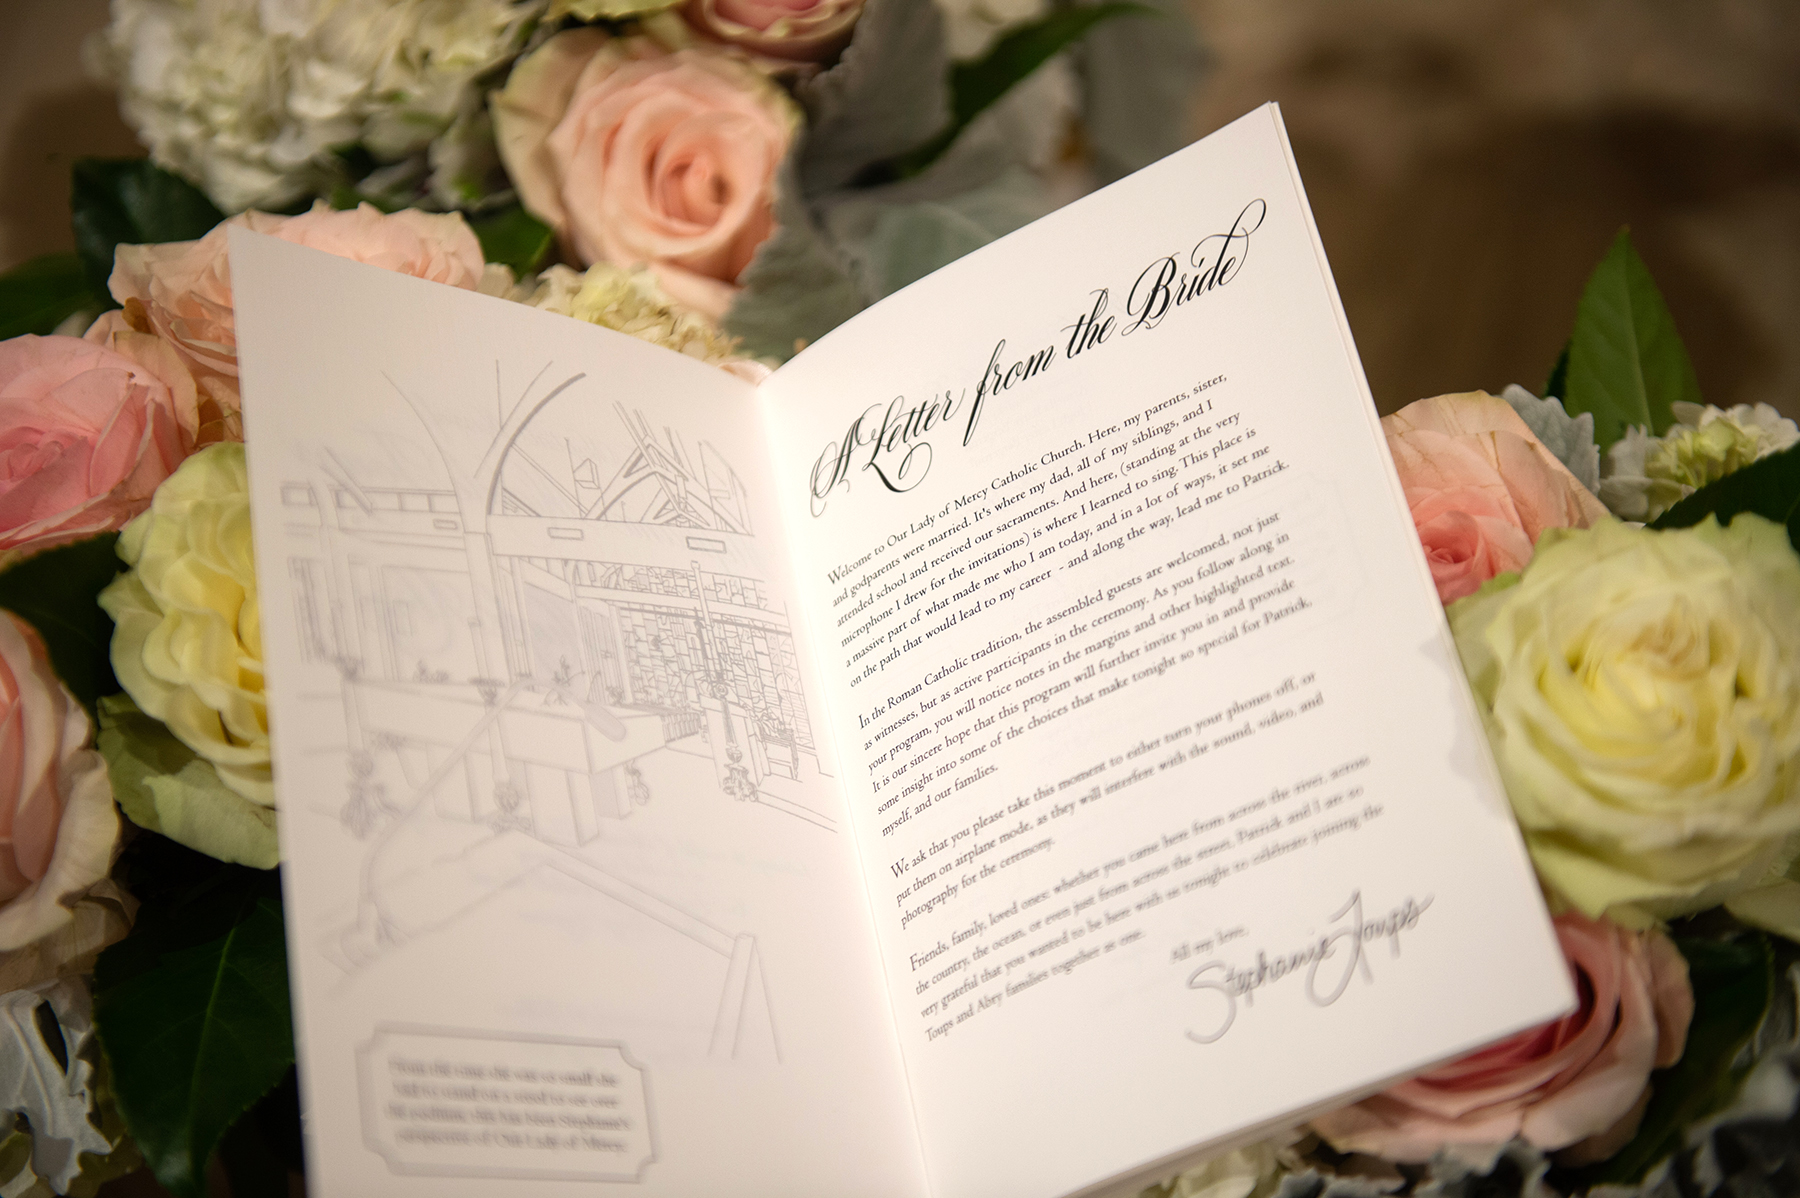 From the time she was so small she
had to stand on a stool to see over
the podium, this has been Stephanie's
perspective of Our Lady of Mercy.
A Letter from the Bride
Welcome to Our Lady of Mercy Catholic Church. Here, my parents, sister,
and godparents were married. It's where my dad, all of my siblings, and I
attended school and received our sacraments. And here, (standing at the very
microphone I drew for the invitations) is where I learned to sing. This place is
a massive part of what made me who I am today, and in a lot of ways, it set me
on the path that would lead to my career - and along the way, lead me to Patrick.
In the Roman Catholic tradition, the assembled guests are welcomed, not just
as witnesses, but as active participants in the ceremony. As you follow along in
your program, you will notice notes in the margins and other highlighted text.
It is our sincere hope that this program will further invite you in and provide
some insight into some of the choices that make tonight so special for Patrick,
myself, and our families.
We ask that you please take this moment to either turn your phones off, or
put them on airplane mode, as they will interfere with the sound, video, and
photography for the ceremony.
Friends, family, loved ones: whether you came here from across the river, across
the country, the ocean, or even just from across the street, Patrick and I are so
very grateful that you wanted to be here with us tonight to celebrate joining the
Toups and Abry families together as one.
All my love,
Stephanie Toups